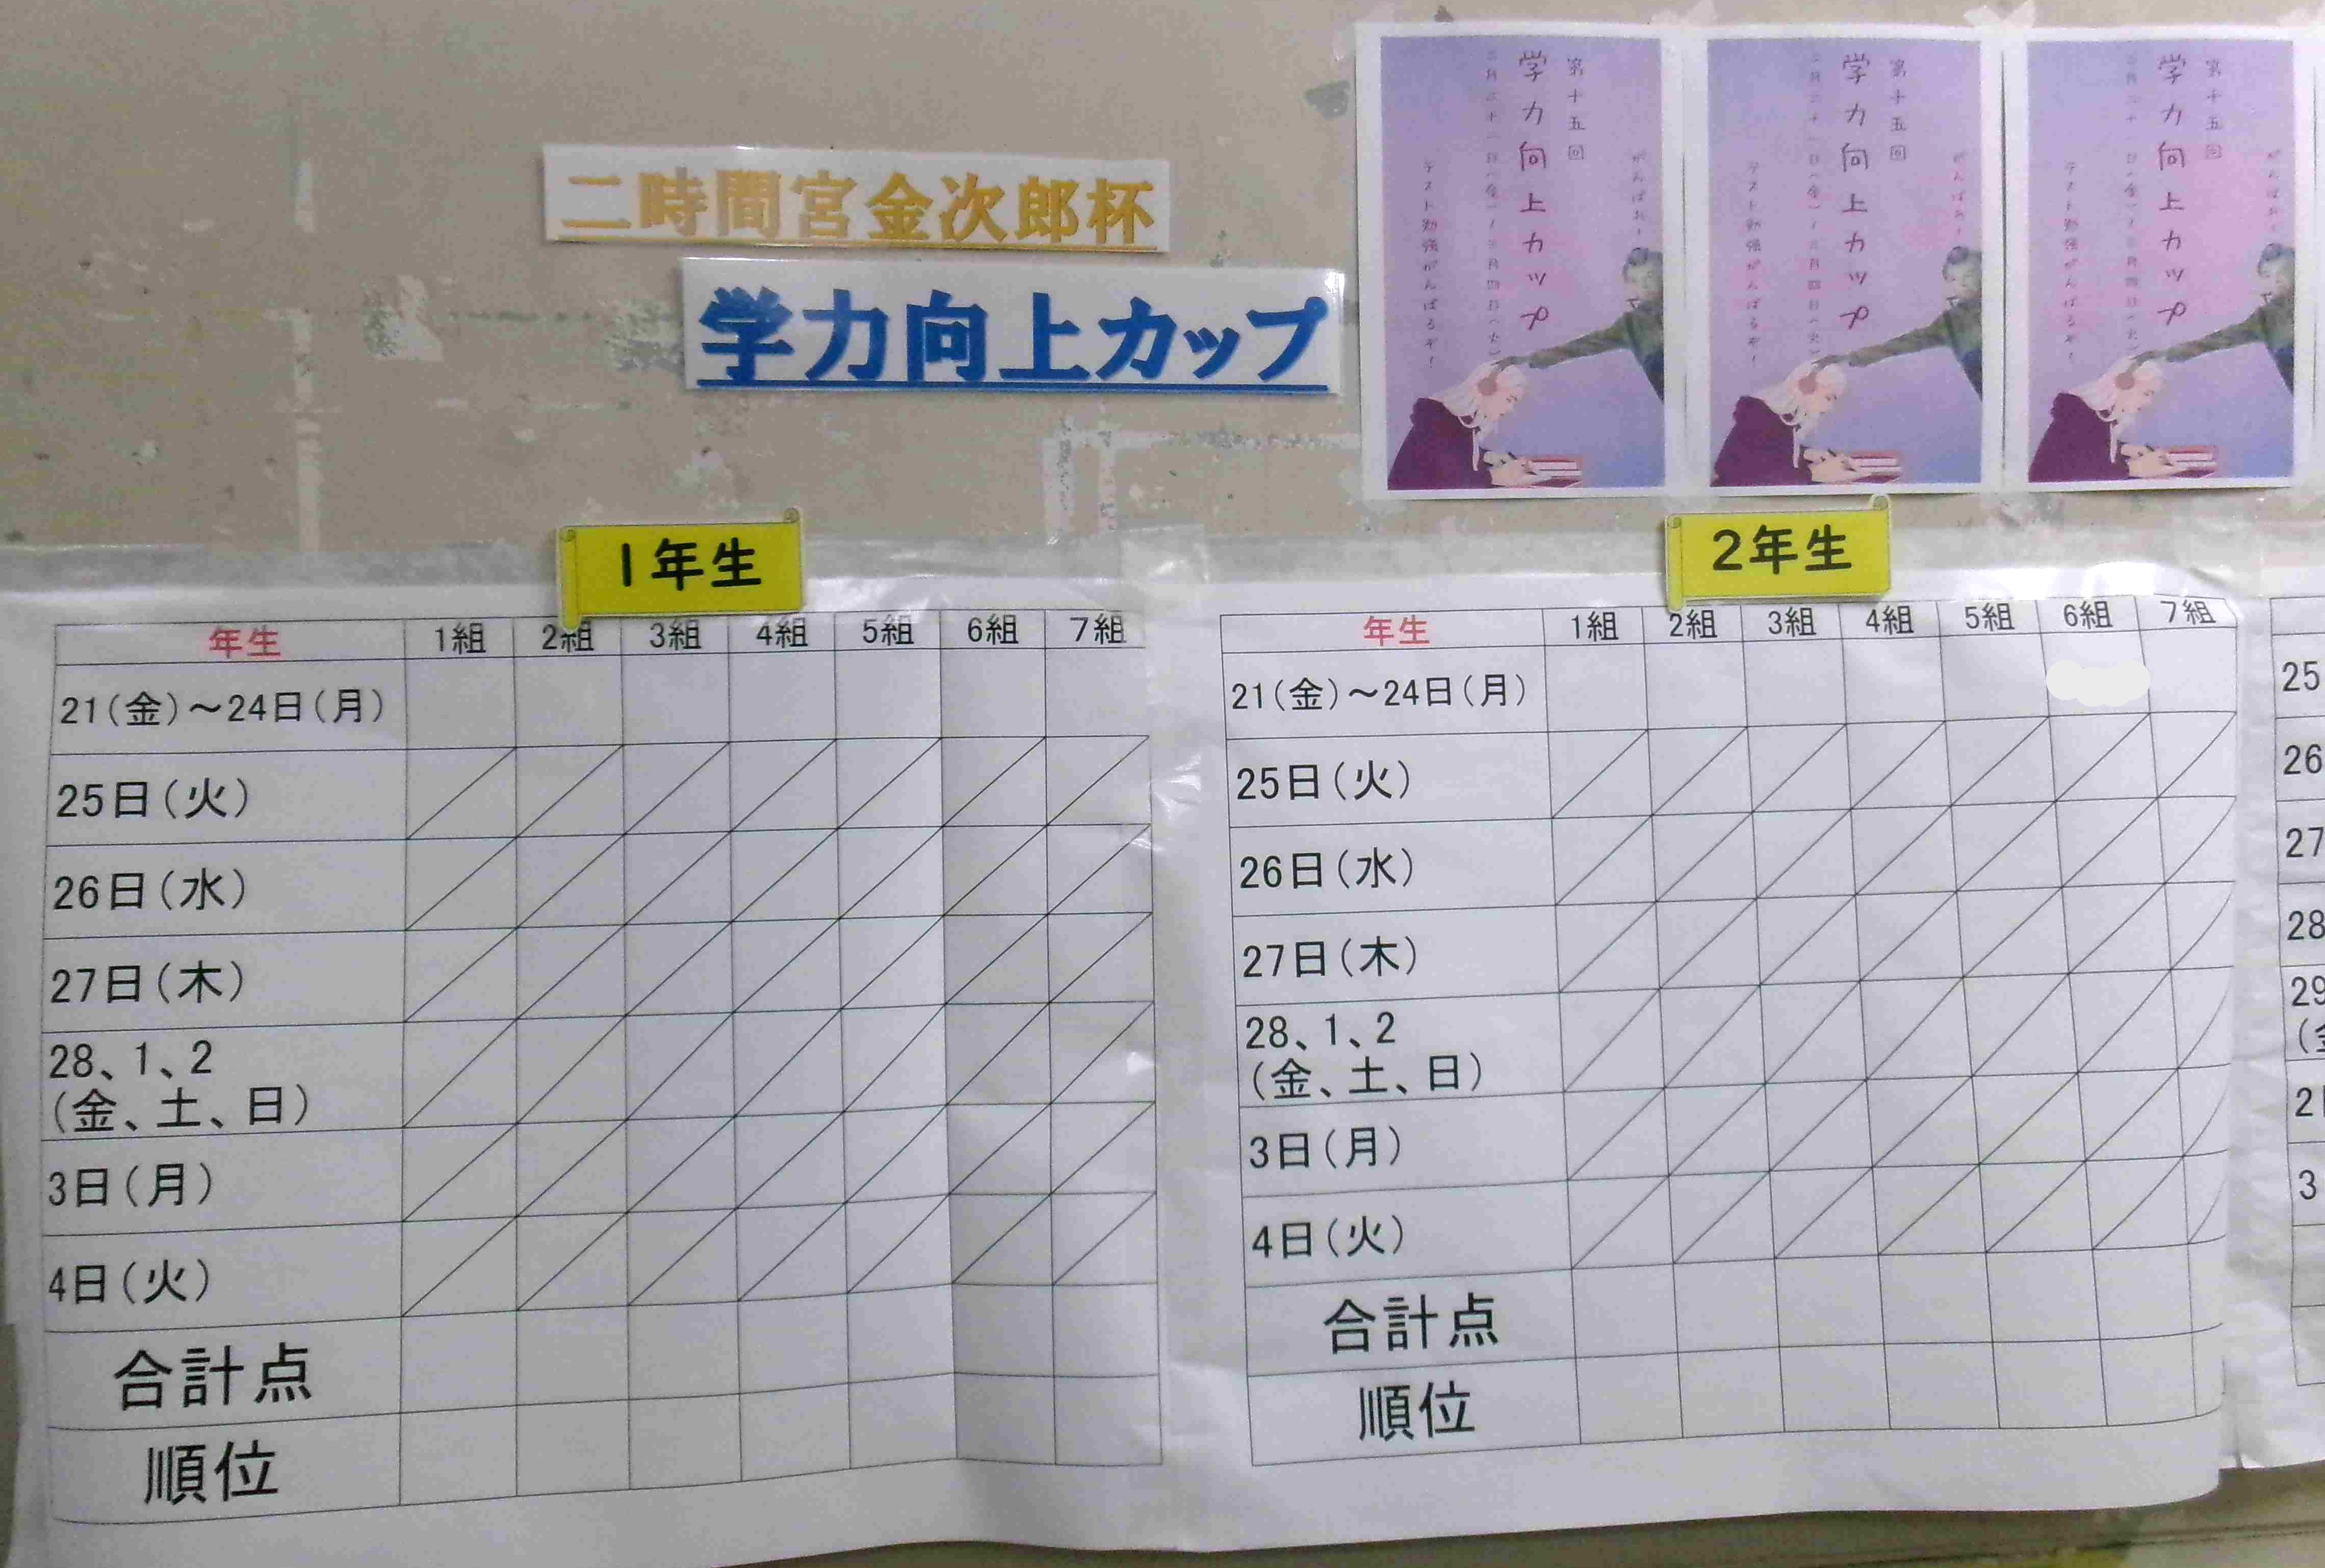 二時間宮金次郎杯
学力向上カップ
第十五回
学力向上カップ
二月二十一日(金)~三月四日(火)
テスト勉強がんばるぞ!
がんばれー
第十五回
学力向上カップ
二月二十一日(金)~三月四日(火)
テスト勉強がんばるぞ!
がんばれー
第十五回
学力向上カップ
二月二十一日(金)~三月四日(火)
テスト勉強がんばるぞ!
がんばれー
1年生
年生 1組 2組 3組 4組 5組 6組 7組
21(金)~24日(月)
25日(火)
26日(水)
27日(木)
28、1、2
(金、土、日)
3日(月)
4日(火)
合計点
順位
2年生
年生 1組 2組 3組 4組 5組 6組 7組
21(金)~24日(月)
25日(火)
26日(水)
27日(木)
28、1、2
(金、土、日)
3日(月)
4日(火)
合計点
順位
25
26
27
28
29
(金
2日
3